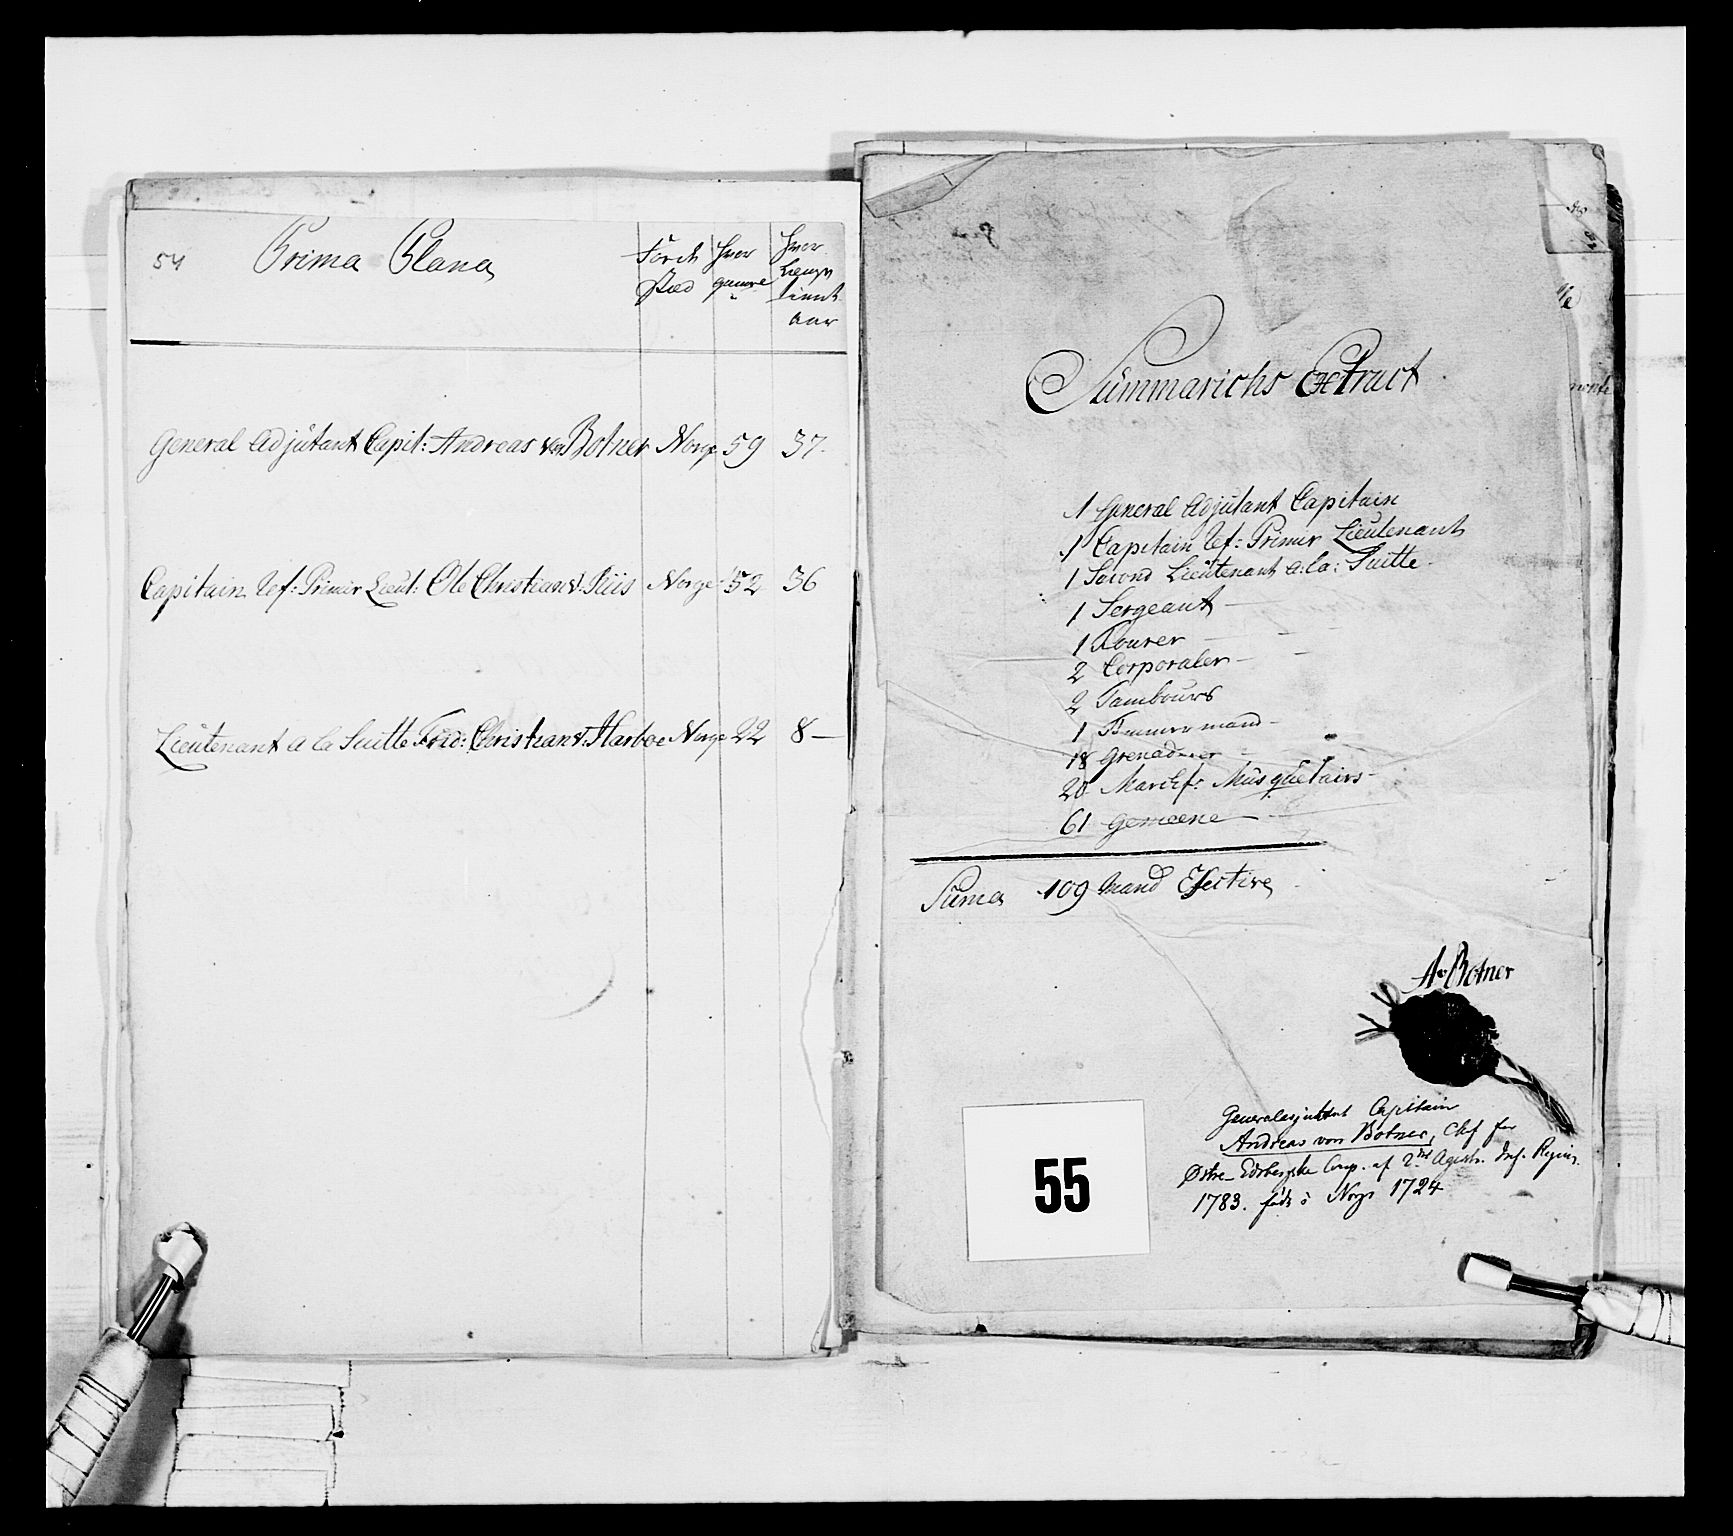 54
Prima Plana
Føde Stæd
Hvor gamle
Hvor Længe tient Aar
General Adjutant Capit: Andreas von Botner Norge 59 37
Capitain Ref: Primir Lieut: Ole Christian v: Riis Norge 52 36
Lieutenant a la Suitte Frid: Christian v: Harboe Norge 22 8 —
Summarichs Extract
1 General Adjutant Capitain
1 Capitain Ref: Primir Lieutenant
1 Second Lieutenant a: la: Suitte
1 Sergeant
1 Fourer
2 Corporaler
2 Tambours
1 Timmermand
18 Grenaderer
20 Musquetairs
61 Gemeene
Suma 109 Mand Efective
A v Botner
Generaladjutant Capitain
Andreas von Botner, Chef for
Østre Comp. af 2det Agersh. Inf. Regim.
1783. født i Norge 1724
55